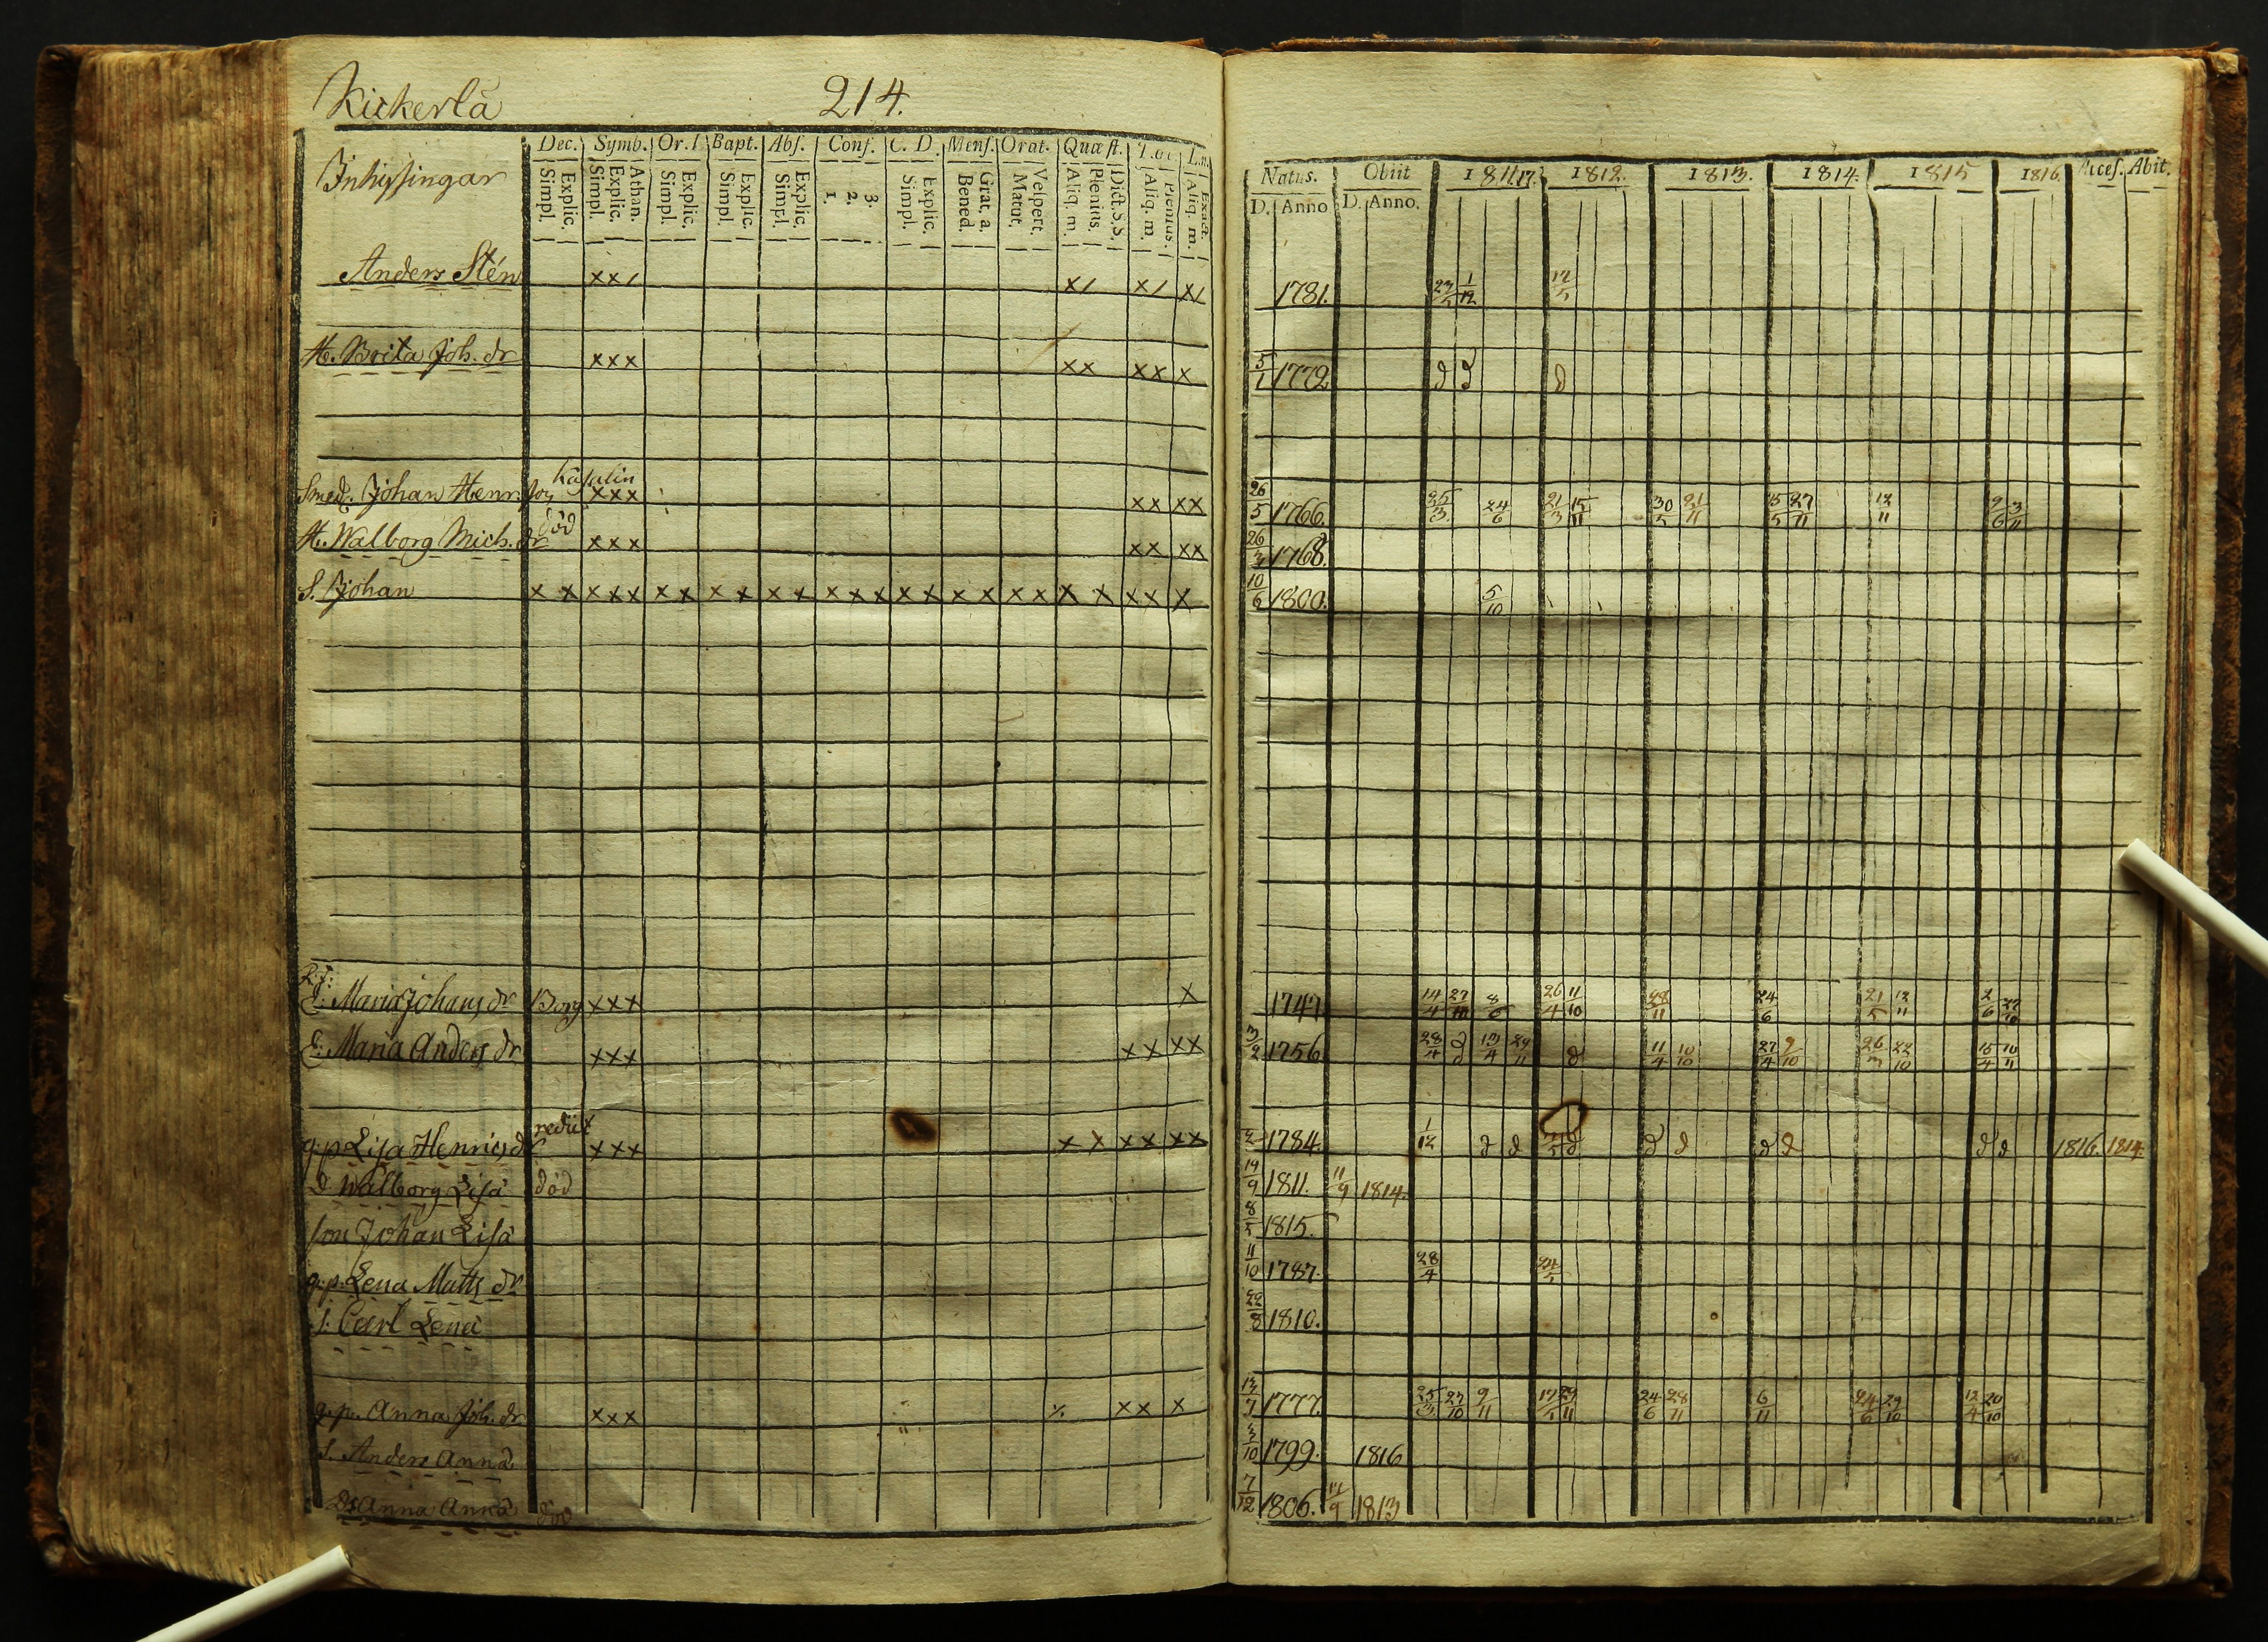 Kickerlä 214.
Dec. Symb. Or. l Bapt. Abs. Conf. C. D. Mens. Orat. Quæst.
Inhysingar
Explic. Simpl. Athan. Explic. Simpl. Explic. Simpl. Explic. Simpl. Explic. Simpl. 3. 2. 1. Explic. Simpl. Grat. a. Bened. Vespert. Matut. Dict. S.S. Plenius. Aliq. m. Plenius. Aliq. m. Exact. Aliq. m.
Natus. Obiit 1811.17. 1812. 1813. 1814. 1815 1816. Acces. Abit.
D. Anno D. Anno.
Anders Stén xx/ x/ x/ x/ 1781. 1/12
H. Brita Joh. dr xxx xx xx x 5/1 1772
Smed. Johan Henr. son xxx xx xx 26/5 1766. 25/3 24/6 21/3 15/11 30/5 21/11 15/5 27/11 12/11 9/6 3/11
död
H. Walborg Mich. dr xxx xx xx 26/3 1768.
S. Johan x x x x x x x x x x x x x x x x x x x x x x x x x x x 10/6 1800. 5/10
E. Maria Johans dr Borg xxx x 1747. 14/4 27/10 8/6 26/4 11/10 28/11 24/6 21/5 12/11 2/6 27/10
E. Maria Anders dr xxx xx xx 3/2 1756 28/4 13/4 29/11 11/4 10/10 27/4 9/10 26/3 22/10 15/4 10/11
rediit
g.p. Lisa Henrics dr xxx x x xx xx 1784. 1/12 1816. 1814.
d. Walborg Lisä död 14/9 1811. 11/9 1814.
son Johan Lisä 8/5 1815.
g.p. Lena Matts dr 11/10 1787. 28/4
S. Carl Lenä 22/8 1810.
g.p. Anna Joh. dr xxx xx x 13/7 1777. 25/3 27/10 9/11 17/5 29/11 24/6 28/11 6/11 24/6 29/10 12/4 20/10
S. Anders Annä 3/10 1799. 1816
Dr Anna Annä död 7/12 1806. 11/9 1813